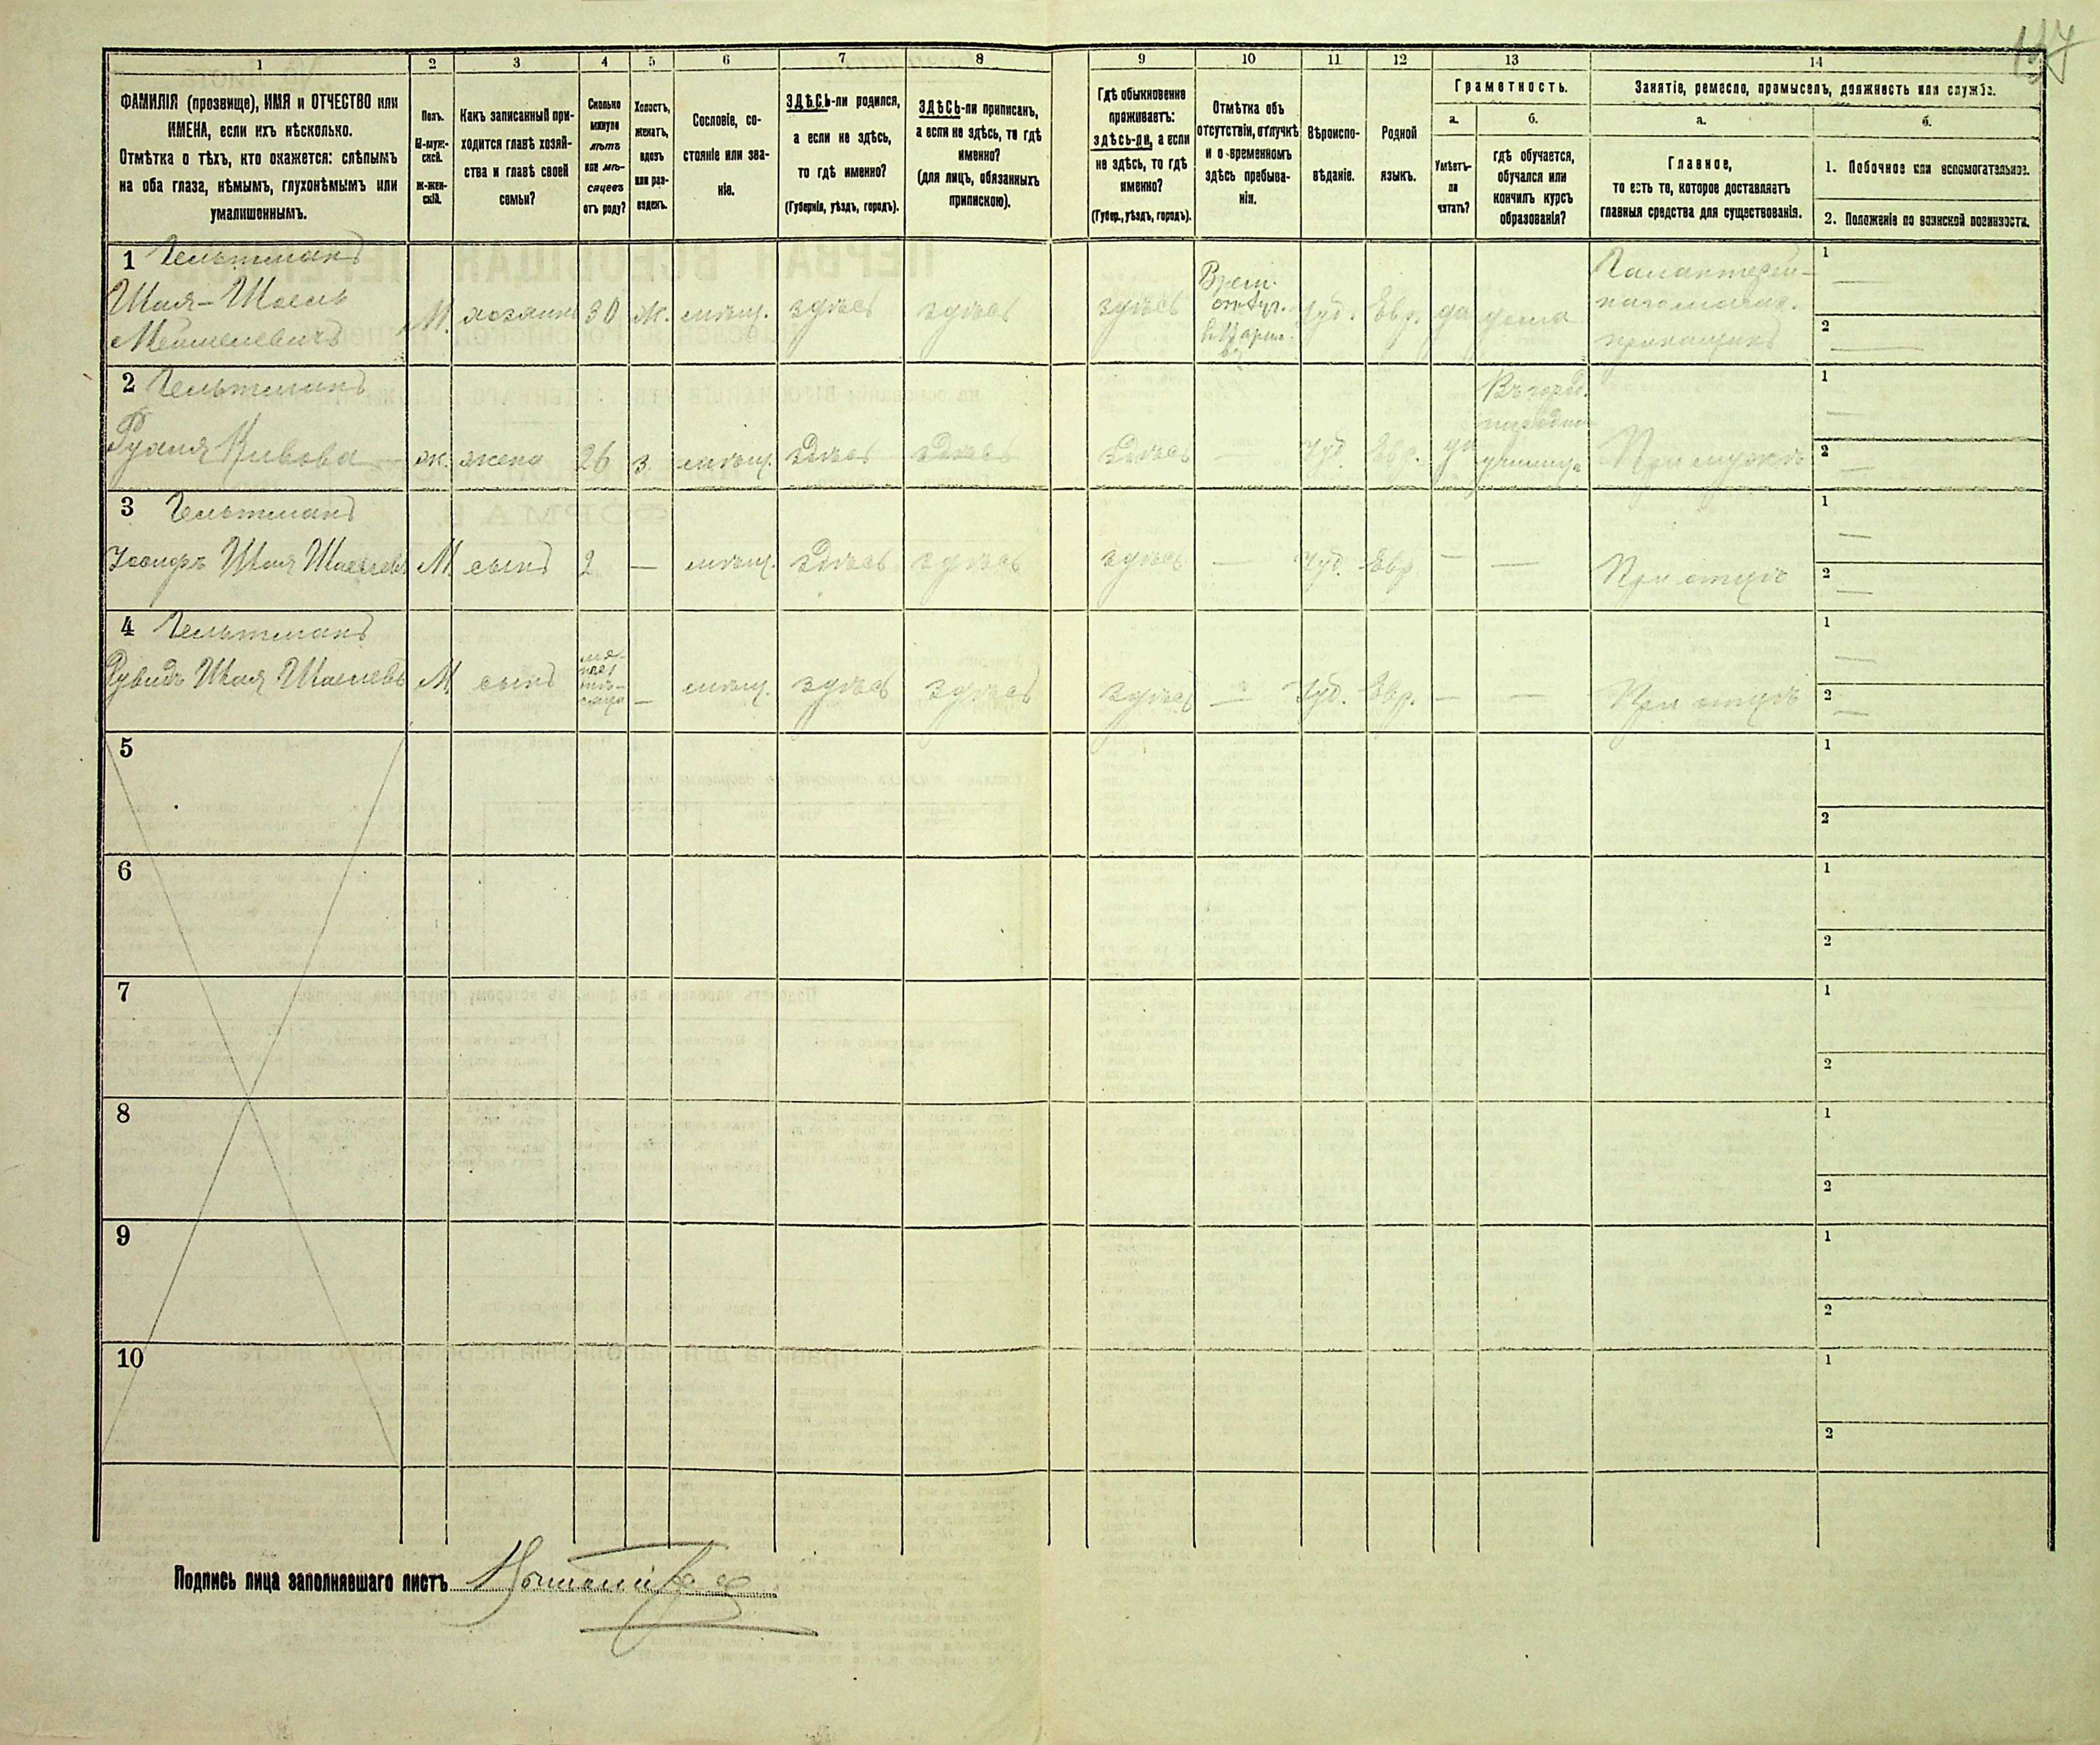 1 2 3 4 5 6 7 8 9 10 11 12 13 14
ФАМИЛІЯ (прозвище), ИМЯ и ОТЧЕСТВО или
ИМЕНА, если ихъ нѣсколько.
Отмѣтка о тѣхъ, кто окажется: слѣпымъ
на оба глаза, нѣмымъ, глухонѣмымъ или
умалишеннымъ.
Полъ.
М-муж-
ской.
ж-жен-
скій.
Какъ записанный при-
ходится главѣ хозяй-
ства и главѣ своей
семьи?
Сколько
минуло
лѣтъ
или мѣ-
сяцевъ
отъ роду?
Холостъ,
женатъ,
вдовъ
или раз-
веденъ.
Сословіе, со-
стояніе или зва-
ніе.
ЗДѢСЬ-ли родился,
а если не здѣсь,
то гдѣ именно?
(Губернія, уѣздъ, городъ).
ЗДѢСЬ-ли приписанъ,
а если не здѣсь, то гдѣ
именно?
(для лицъ, обязанныхъ
припискою).
Гдѣ обыкновенно
проживаетъ:
здѣсь-ли, а если
не здѣсь, то гдѣ
именно?
(Губер., уѣздъ, городъ).
Отмѣтка объ
отсутствіи, отлучкѣ
и о временномъ
здѣсь пребыва-
ніи.
Вѣроиспо-
вѣданіе.
Родной
языкъ.
Грамотность.
а.
Умѣетъ-
ли
читать?
б.
гдѣ обучается,
обучался или
кончилъ курсъ
образованія?
Занятіе, ремесло, промыселъ, должность или служба.
а.
Главное,
то есть то, которое доставляетъ
главныя средства для существованія.
б.
1. Побочное или вспомогательное.
2. Положеніе по воинской повинности.
1 Гельтманъ
Шая-Шоель
М. хозяинъ 30 ж. мѣщ. здѣсь здѣсь здѣсь
Врем.
отлуч.
Іуд. Евр. да дома
Галантерей-
приказчикъ
1
2
2 Гельтманъ
ж. жена 26 з. мѣщ. Здѣсь Здѣсь Здѣсь — Іуд. Евр. да
народно
училище
При мужѣ
1
2
3 Гельтманъ
Іосифъ Шая Шоелевъ М. сынъ 2 — мѣщ. Здѣсь здѣсь здѣсь — Іуд. Евр. — — При отцѣ
1
2
4 Гельтманъ
Рувидъ Шая Шоелевъ М. сынъ
мѣ-
сяца
— мѣщ. здѣсь здѣсь здѣсь — Іуд. Евр. — — При отцѣ
1
2
5
1
2
6
1
2
7
1
2
8
1
2
9
1
2
10
1
2
Подпись лица заполнявшаго листъ